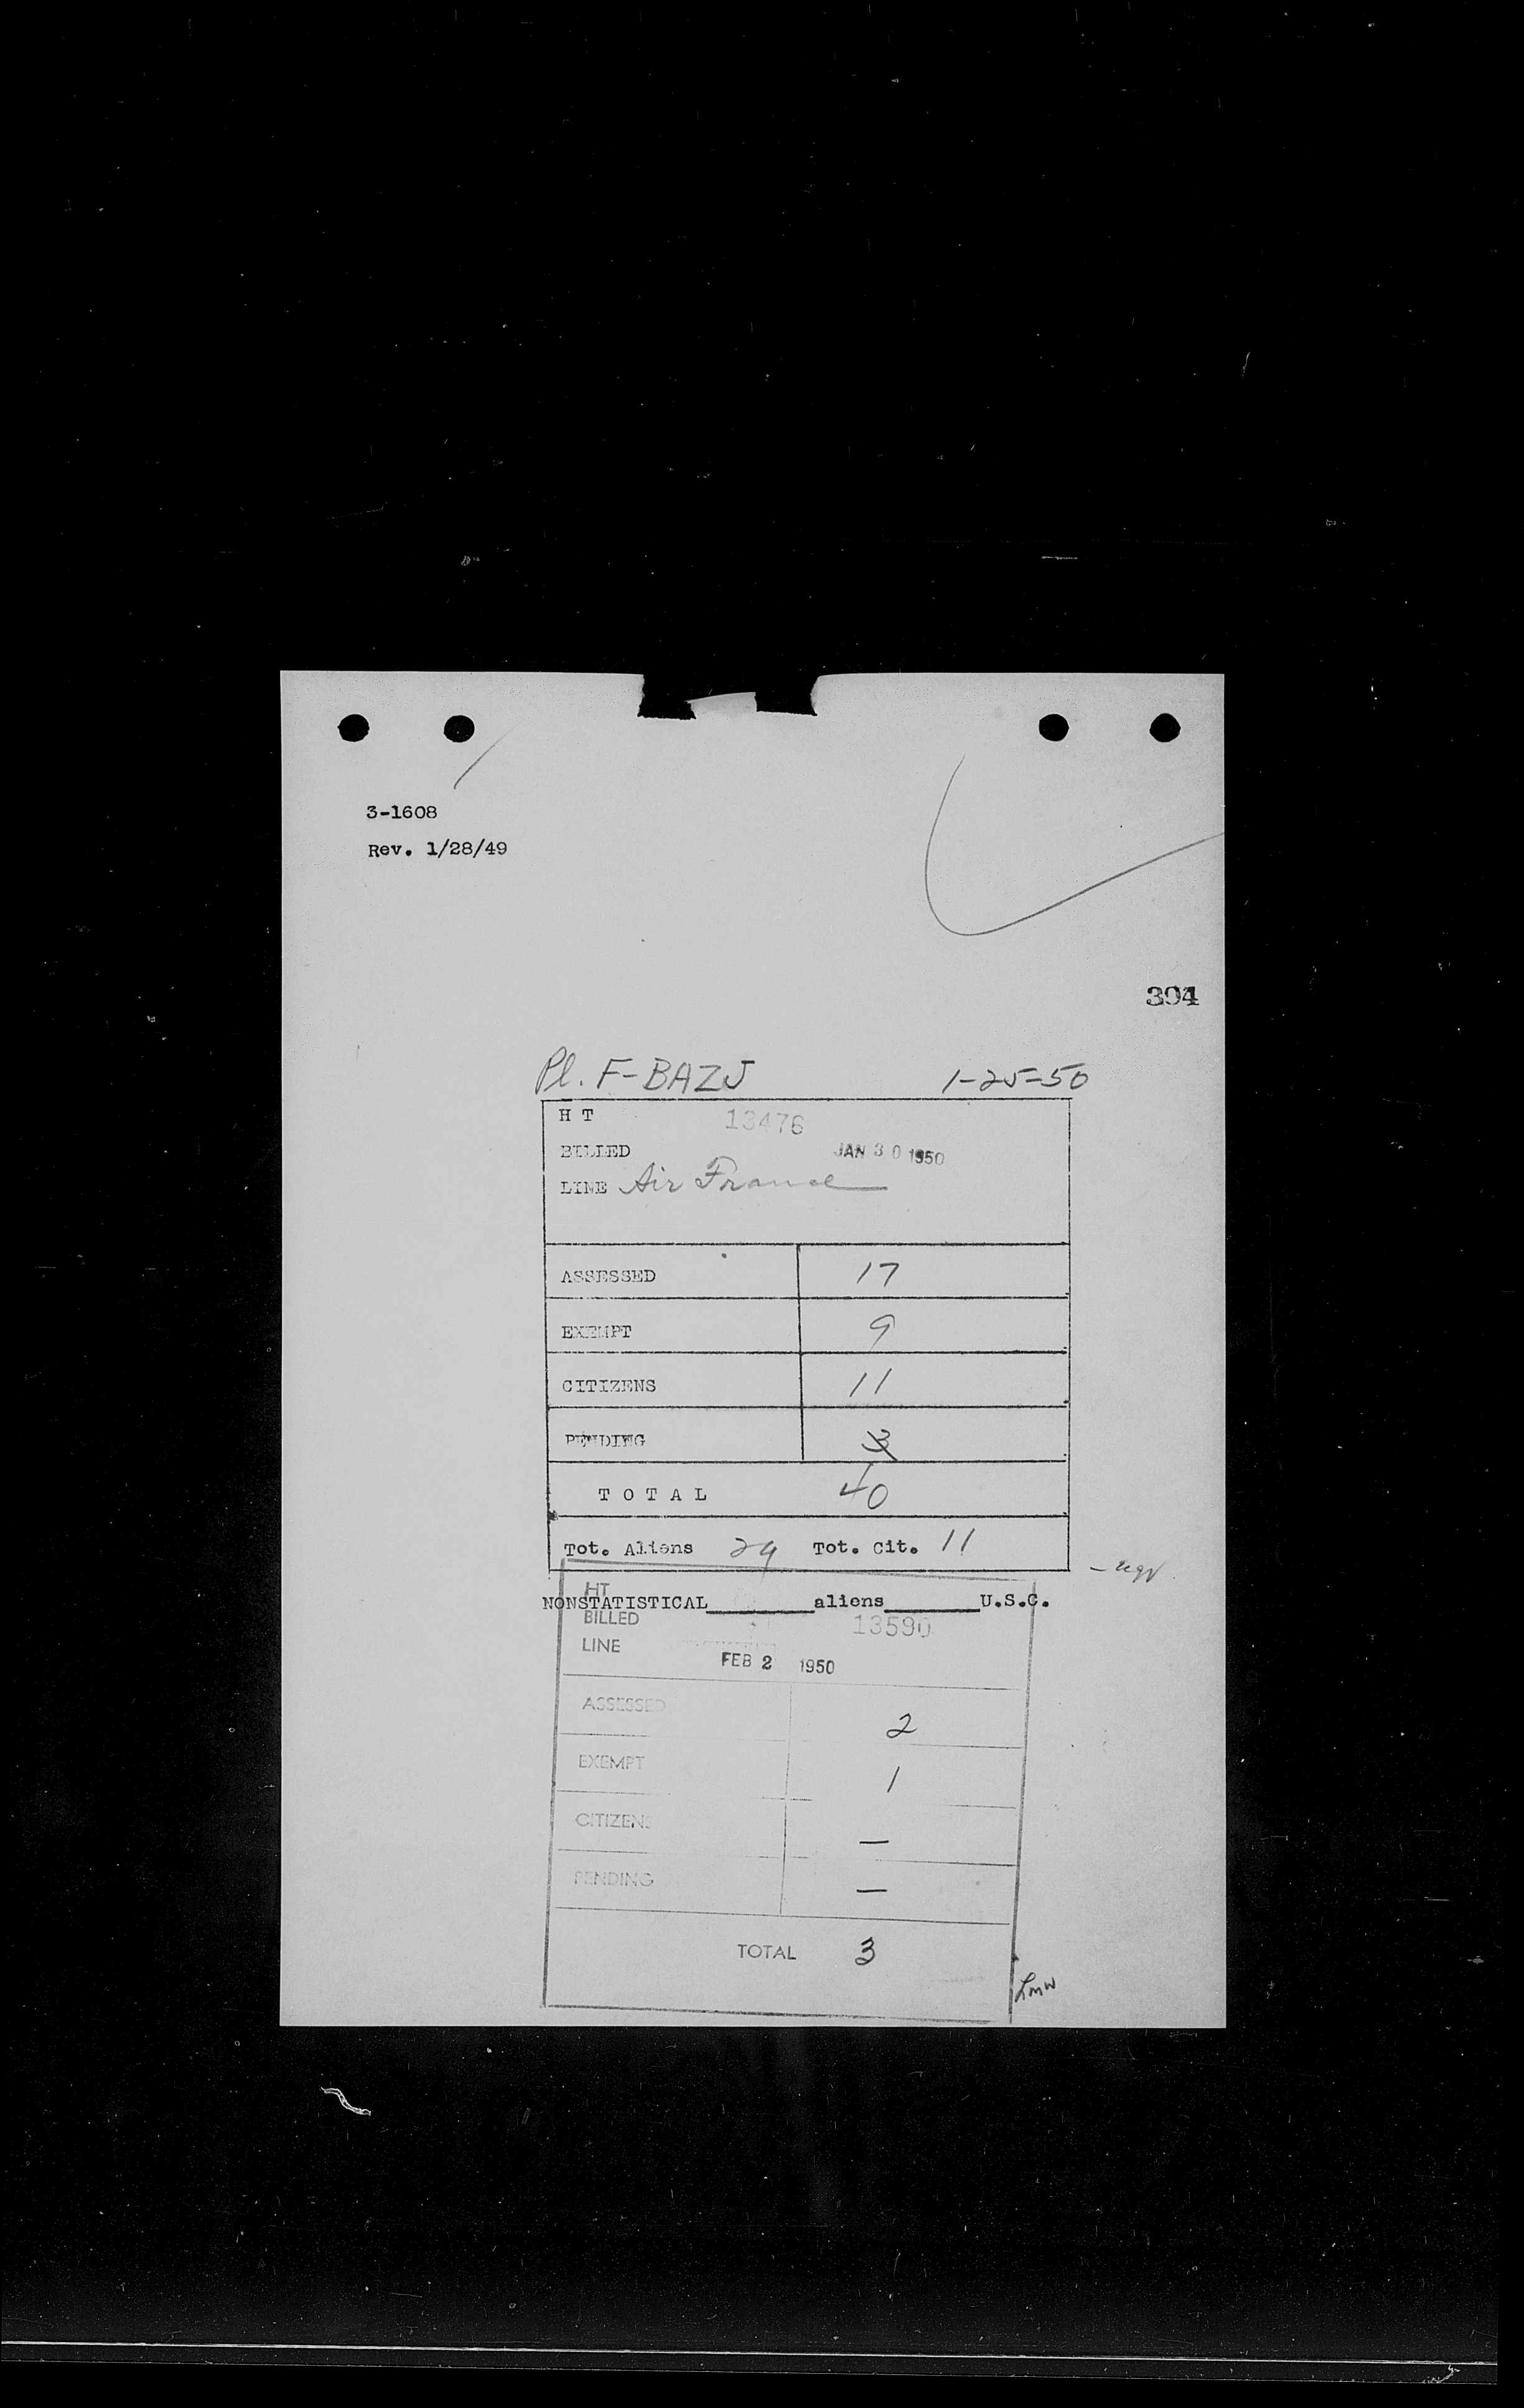 3-1608
Rev. 1/28/49
304
Pl. F-BAZJ 1-25-50
H T 13476
BILLED JAN 30 1950
LINE Air France
ASSESSED 17
EXEMPT 9
CITIZENS 11
PENDING 3
TOTAL 40
Tot. Aliens 29 Tot. Cit. 11
NONSTATISTICAL ________ aliens ________ U.S.C.
HT
BILLED 13590
LINE FEB 2 1950
ASSESSED 2
EXEMPT 1
CITIZENS —
PENDING —
TOTAL 3
Lmw